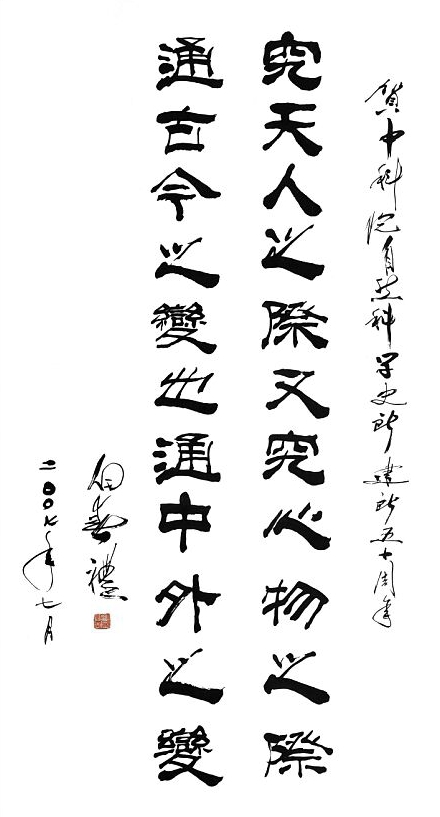 賀中科院自然科学史所建所五十周年
究天人之際又究心物之際
通古今之變也通中外之變
白春禮
二〇〇七年七月